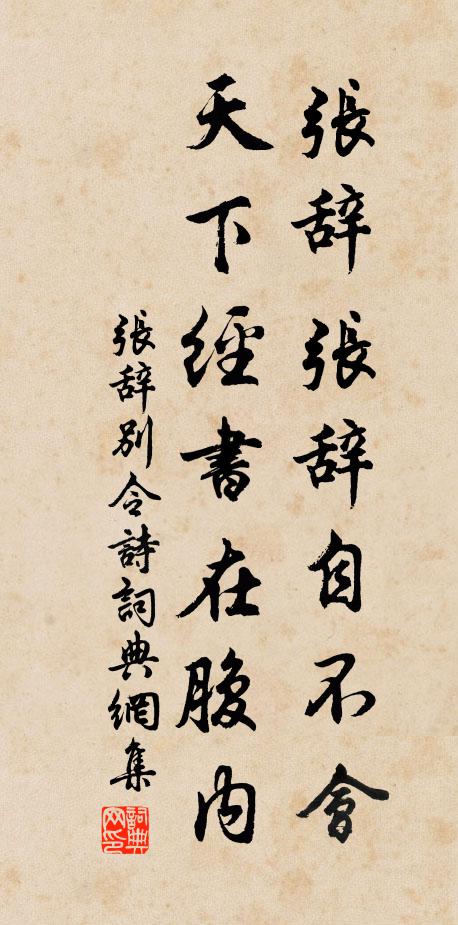 張辞張辞自不會
天下經書在腹内
張辞別令詩詞典網集
詞典
网印